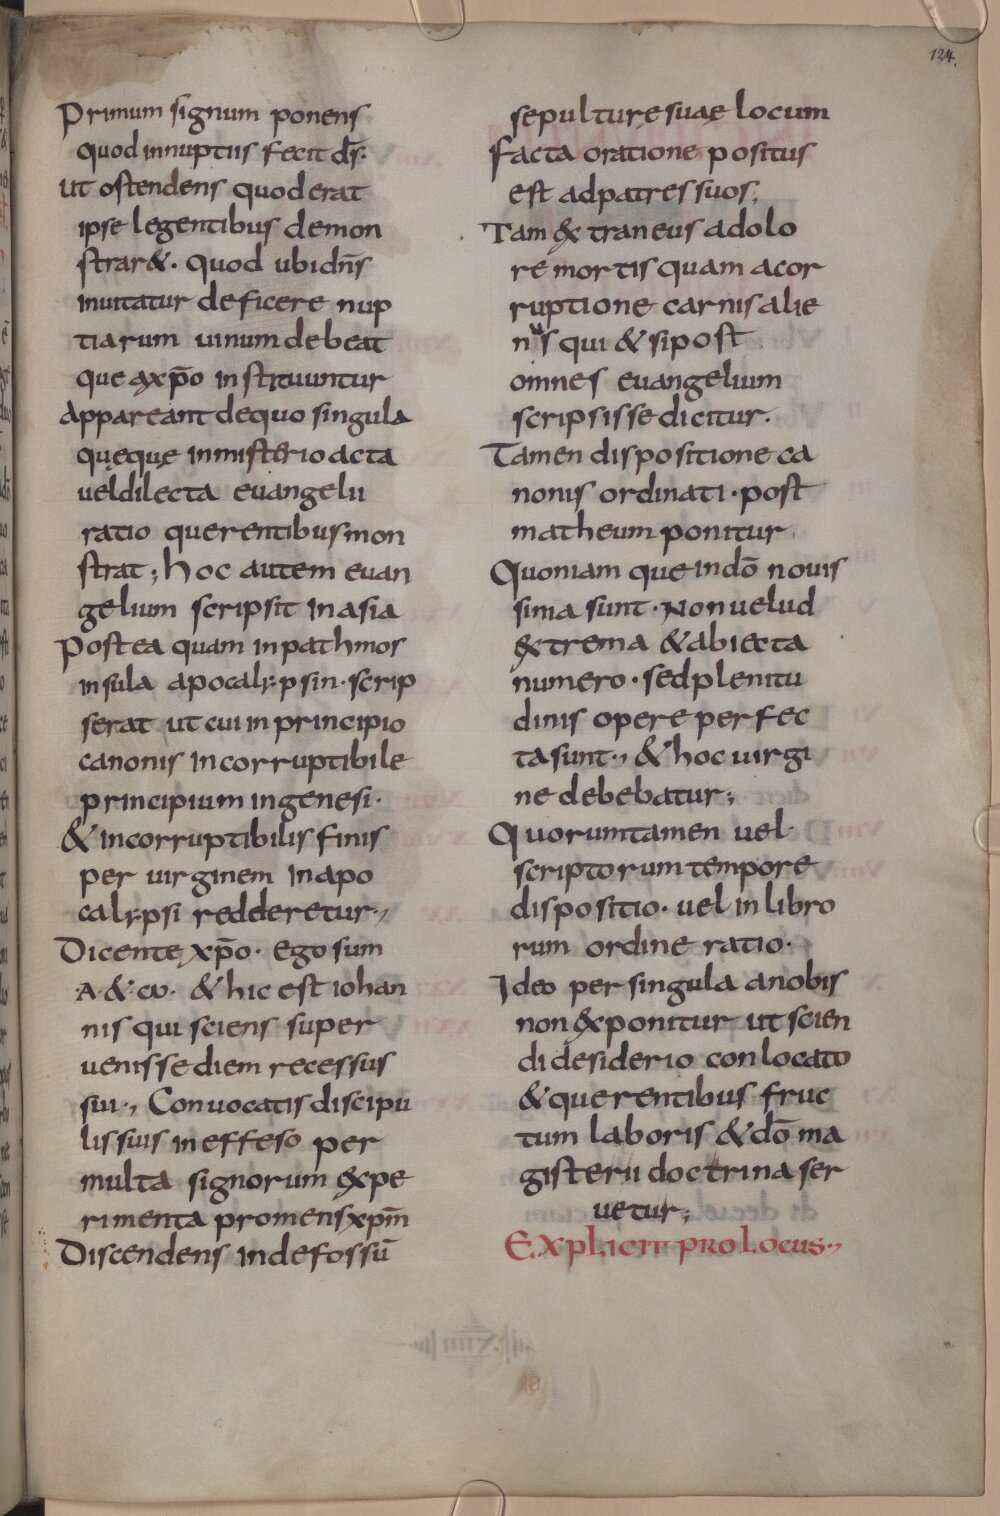 124.
Primum signum ponens
quod innuptiis fecit d̄s:
ut ostendens quod erat
ipse legentibus demon
strar&. quod ubi dn̄s
inuitatur deficere nup
tiarum uinum debeat
que ⁊ xp̄o instituuntur
Appareant dequo singula
quęquę inmisterio acta
uel dilecta euangelii
ratio querentibus mon
strat; hoc autem euan
gelium scripsit in asia
Postea quam inpathmos
insula apocalypsin. scrip
serat ut cui in principio
canonis incorruptibile
principium ingenesi.
& incorruptibilis finis
per uirginem in apo
calypsi redderetur.,
Dicente xp̄o. Ego sum
·A·&·ω· & hic est iohan
nis qui sciens super
uenisse diem recessus
sui., Conuocatis discipu
lis suis in effeso per
multa signorum expe
rimenta promens xp̄m
Discendens indefossū
sepulture suae locum
facta oratione positus
est ad patres suos;
Tam extraneus adolo
re mortis quam acor
ruptione carnis alie
nus qui & si post
omnes euangelium
scripsisse dicitur.
Tamen dispositione ca
nonis ordinati. post
matheum ponitur
Quoniam que indō nouis
sima sunt. Non uelud
extrema & abiecta
numero. sed plenitu
dinis opere perfec
ta sunt., & hoc uirgi
ne debebatur;
Quorumtamen uel
scriptorum tempore
dispositio. uel in libro
rum ordine ratio.
Ideo per singula anobis
non exponitur ut scien
di desiderio conlocato
& querentibus fruc
tum laboris & dō ma
gisterii doctrina ser
uetur;
Explicit prolocus.,